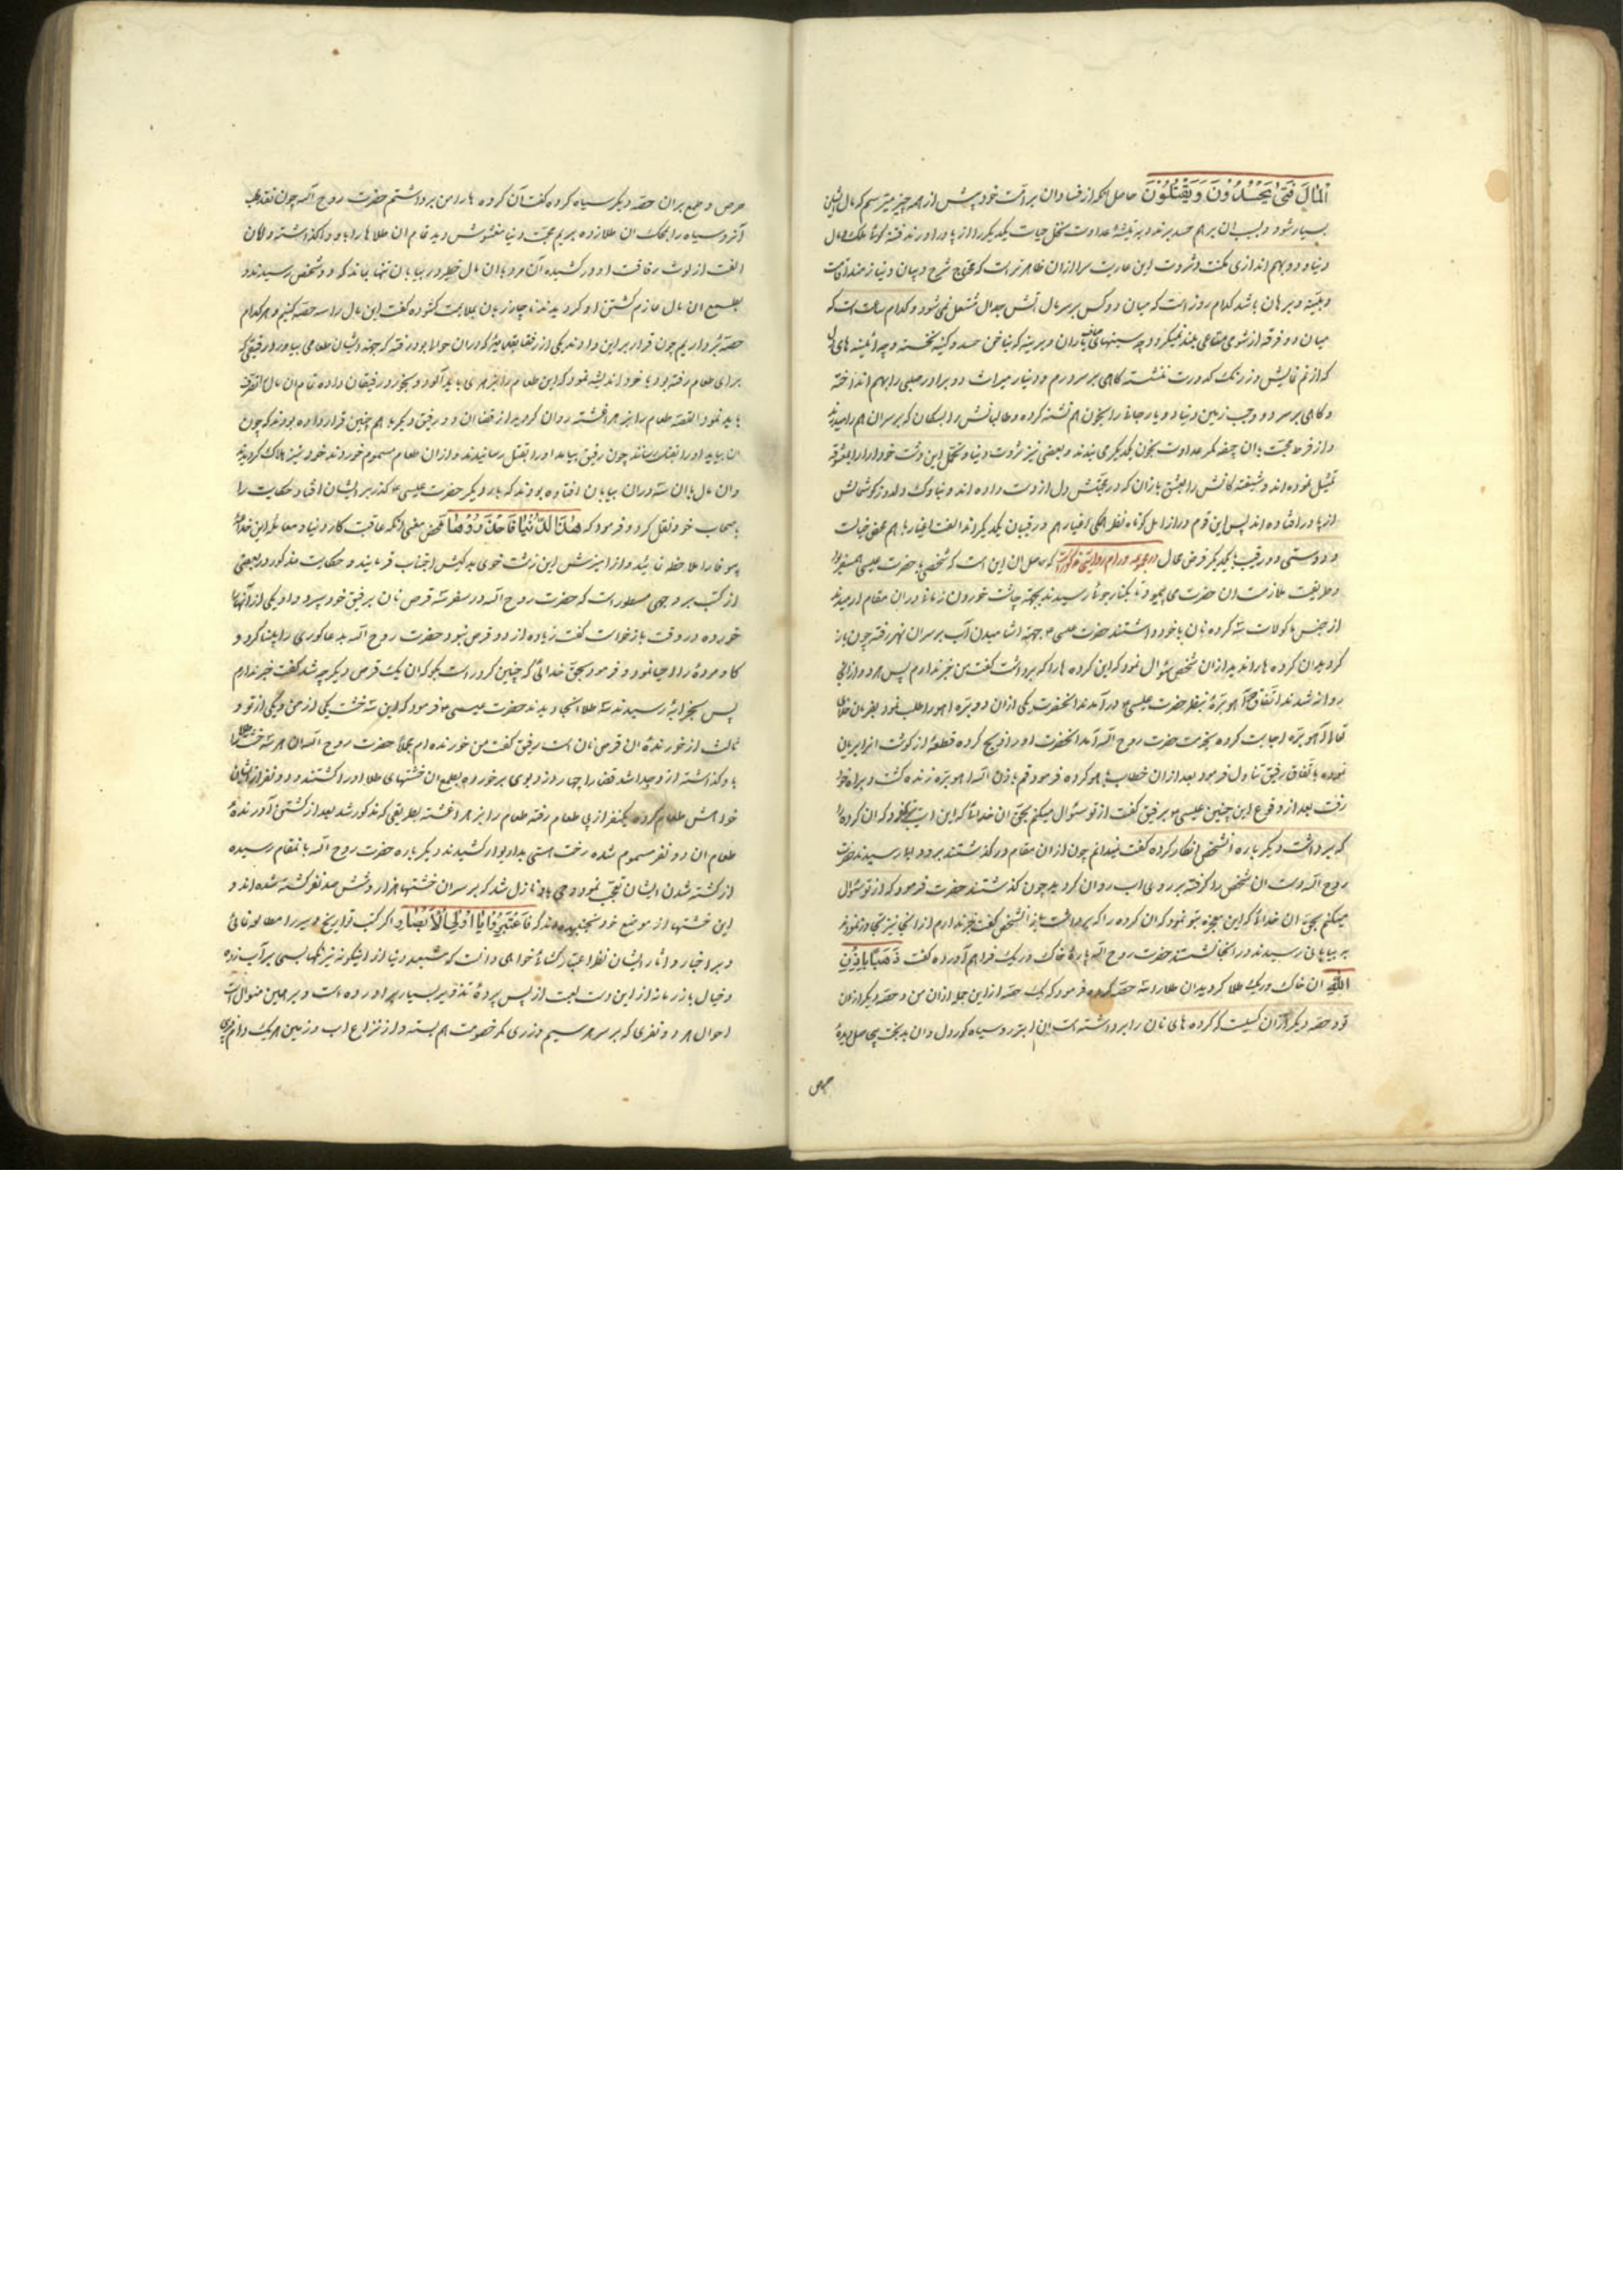 الْمَالَ فَتَىٰ يَحْسُدُونَ وَيَقْتُلُونَ حاصل آنکه از فسادان بر امت خود پیش از هر چیز میترسم که مال ایشان
بسیار شود و بسبب ان بر هم حسد برند و بر تیشهٔ عداوت نخل حیات یکدیکر را از پا دراورند فتنه
دنیا و دو بهم اندازی مکنت و ثروت این عاریت سرا ازان ظاهرتر است که محتاج شرح و بیان و نیازمند اقامت
و بینه و برهان باشد کدام روز است که میان دو کس بر سر مال اتش جدال مشتعل نمی شود و کدام ساعت است که
میان دو فرقه از شومی متاعی بلند نمیکردد چه سینهای صاف یاران دیرینه که بناخن حسد و کینه نخسته و چه ائینه های
که از غم فزایش و زرنک کدورت ننشسته کاهی بر سر درم و دینار میراث دو برادر صلبی را بهم انداخته
و کاهی بر سر دو وجب زمین دنیا دو یار جانی را بخون هم تشنه کرده و طالبانش را بسکان که بر سر ان هم رامیدرند
و از فرط محبت بان جیفه کمر عداوت بخون یکدیکر می بندند و بعضی نیز ثروت دنیا و تجمل این دشت خودارا را بمعشوقه
تمثیل نموده اند و شیفته کانش را بعشق بازان که در محبتش دل از دست داده اند و بناوک دلدوز کوشمالش
از پا در افتاده اند پس این قوم دراز امل کوتاه نظر همکی اغیار هم و رقیبان یکدیکراند الفت اغیار با هم محض خیالت
و دوستی دو رقیب با یکدیکر فرض محال در مجموعه ورام روایتی مذکورست که حاصل ان این است که شخصی با حضرت عیسی همسفر بود
و طریقت ملازمت ان حضرت می پیمود تا بکنار جوئی رسیدند بجهة چاشت خوردن زمانی دران مقام ارمیدند
از جنس ماکولات سه کرده نان با خود داشتند حضرت عیسی ۴ بجهة اشامیدن آب بر سر ان نهر رفته چون باز
کردید ان کرده ها را ندید از ان شخص سؤال نمود که این کرده ها را که برداشت کفت من خبر ندارم پس هر دو ازانجا
روانه شدند اتفاقا آهو برهٔ بنظر حضرت عیسی ۴ درآمد ند انحضرت یکی ازان دو بره اهو را طلب نمود بفرمان خدای
تعالی آهو بره اجابت کرده بخدمت حضرت روح الله آمد انحضرت او را ذبح کرده قطعهٔ از کوشت انرا بریان
نموده با تفاق رفیق تناول فرمود بعد ازان خطاب باهو کرده فرمود قم باذن الله اهو بره زنده کشت و براه خود
رفت بعد از وقوع این چنین عیسی ۴ بر رفیق کفت از تو سؤال میکنم بحق ان خدائی که این ایت بتو نمود که ان کرده را
که برداشت دیکر باره انشخص انکار کرده کفت نمیدانم چون از ان مقام درکذشتند برود ابی رسیدند حضرت
روح الله دست ان شخص را کرفته بر روی اب روان کردید چون کذشتند حضرت فرمود که از تو سؤال
میکنم بحق ان خدائی که این معجزه بتو نمود که ان کرده را که برداشت باز انشخص کفت خبر ندارم از انجا نیز تجاوز نمودند
بر بیابانی رسیدند و در انجا نشستند حضرت روح الله پارهٔ خاک و ریک فراهم آورده کفت ذَهَبًا بِاِذْنِ
اللهِ ان خاک و ریک طلا کردید ان طلا را سه حصه کرده فرمود که یک حصه از این جمله ازان من و حصه دیکر ازان
تو و حصه دیکر ازان کسیست که کرده های نان را برداشته است ان ابتر رو سیاه کور دل و ان بدبخت بی حاصل بدیدهٔ
حرص
حرص و طمع بران حصه دیکر سیاه کرده کفت آن کرده ها را من برداشتم حضرت روح الله چون نقد قلب
آنرو سیاه را بمحک ان طلا زده بر بم محبت دنیا مغشوش دید تمام ان طلاها را باو واکذاشته و دامان
الفت از لوث رفاقت او درکشیده آن مرد باان مال خطیر در بیابان تنها بماند که دو شخص رسیدند و
بطمع ان مال عازم کشتن او کردیدند ناچار زبان بملایمت کشوده کفت این مال را سه حصه کنیم و هر کدام
حصهٔ برداریم چون قرار بر این دادند یکی از رفقا بقصبهٔ که دران حوالی بود رفته که جهة ایشان طعامی بیاورد رفیقی که
برای طعام رفته بود با خود اندیشه نمود که این طعام را بزهر می باید آلود و بخورد رفیقان داده تمام ان مال را تصرف
باید نمود القصه طعام را بزهر اغشته روان کردید از قضا ان دو رفیق دیکر با هم چنین قرار داده بودند که چون
ان بیاید او را بقتل رسانند چون رفیق بیامد او را بقتل رسانیدند و ازان طعام مسموم خوردند خود نیز هلاک کردیدند
وان مال باان سه دران بیابان افتاده بودند که بار دیکر حضرت عیسی ۴ کذر بر ایشان افتاد حکایت را
باصحاب خود نقل کرد و فرمود که هٰذَا الدُّنْیَا فَاحْذَرُوْهَا محض معنی انکه عاقبت کار دنیا و معاملهٔ این غدار
بیوفا را ملاحظه نمائید و از امیزش این زشت خوی بدکیش اجتناب فرمائید و حکایت مذکور در بعضی
از کتب بر وجهی مسطور است که حضرت روح الله در سفر سه قرص نان بر رفیق خود سپرد و او یکی از آنها را
خورده در وقت بازخواست کفت زیاده از دو قرص نبود حضرت روح الله بدعا کوری را بینا کرد و
کاو مردهٔ را احیا نمود و فرمود بحق خدائی که چنین کرد راست بکو که ان یک قرص دیکر چه شد کفت خبر ندارم
پس بخرابهٔ رسیدند سه طلا انجا دیدند حضرت عیسی ۴ فرمود که این سه خشت یکی از من و یکی از تو و
ثالث از خورندهٔ ان قرص نان است رفیق کفت من خورنده ام مجملا حضرت روح الله ان هر سه خشت
باو کذاشته از و جدا شد قضا را چهار دزد بوی برخورده بطمع ان خشتهای طلا او را کشتند و دو نفر از ایشان
خواهش طعام کرده یکنفر از پی طعام رفته طعام را بزهر اغشته بطریقی که مذکور شد بعد از کشتن آورندهٔ
طعام ان دو نفر مسموم شده رخت هستی بدار بوار کشیدند دیکر باره حضرت روح الله بانمقام رسیده
از کشته شدن ایشان تعجب نمود وحی باو نازل شد که بر سر ان خشتها هزار و شش صد نفر کشته شده اند و
این خشتها از موضع خود نجنبیده اند که فَاعْتَبِرُوْا یٰا اُولِی الْاَبْصَارِ اکر کتب تواریخ و سیر را مطالعه نمائی
و بر اخبار و اثار ایشان نظر اعتبار کشائی خواهی دانست که شعبده دنیا از اینکونه نیرنکها بسی بر آب زده
و خیال باز زمانه از این دست لعبت از پس پردهٔ تذویر بسیار براورده است و بر همین منوال است
احوال هر دو نفری که بر سر هر سیم و زری کمر خصومت هم بسته و از نزاع اب و زمین هر یک